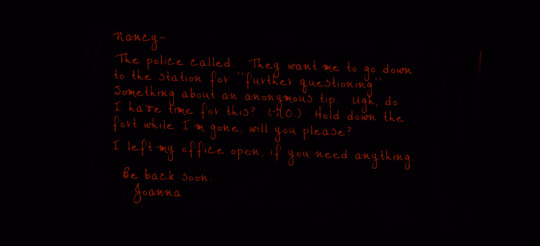 Nancy-
The police called. They want me to go down
to the station for "further questioning".
Something about an anonymous tip. Ugh, do
I have time for this? (-NO.) Hold down the
fort while I'm gone, will you please?
I left my office open, if you need anything
Be back soon.
Joanna